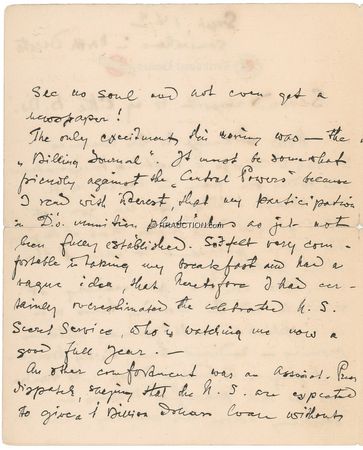 See no soul and not even get a
newspaper!
The only excitement this morning was – the
„Billing Journal". It must be somewhat
friendly against the „Central Powers" because
I read with interest, that my participation
in D'o. munition plants as jet not
been fully established. So I felt very com-
fortable in taking my breakfast and had a
vague idea, that heretofore I had cer-
tainly overestimated the celebrated U. S.
Secret Service, who is watching me now a
good full year. –
An other comfortment was an Associat. Press
dispatch, saying that the U. S. are expected
to give a 1 Billion Dollars loan without
RRAUCTION.COM